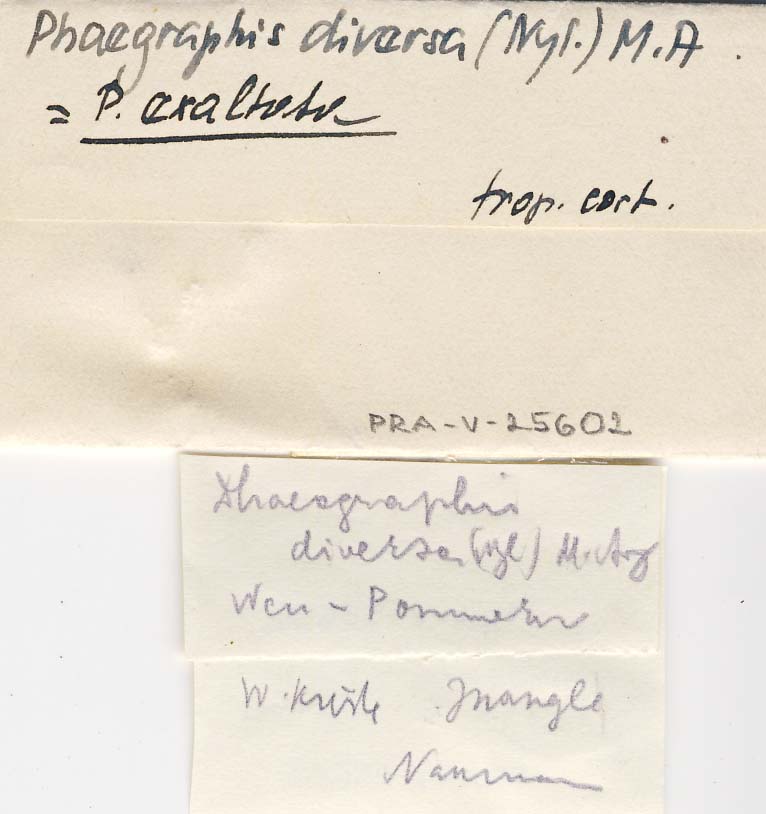 Phaegraphis diversa (Nyl.) M.A.
= P. exaltata
trop. cort.
PRA-V-25602
Phaeographis
diversa (Nyl) M. Arg
Neu-Pommern
W. Küste
Nauman